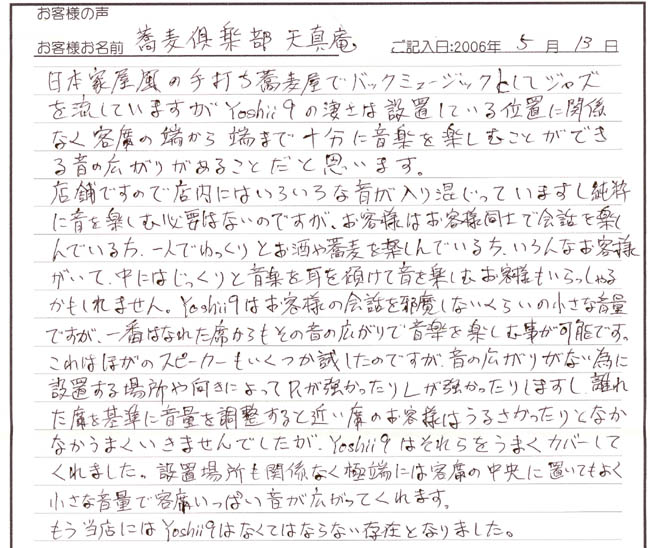 お客様の声
お客様お名前 蕎麦倶楽部 天真庵. ご記入日:2006年 5 月 13 日
日本家屋風の手打ち蕎麦屋でバックミュージックとしてジャズ
を流していますがYoshii9の凄さは設置している位置に関係
なく客席の端から端まで十分に音楽を楽しむことができ
る音の広がりがあることだと思います。
店舗ですので店内にはいろいろな音が入り混じっていますし純粋
に音を楽しむ必要はないのですが、お客様はお客様同士で会話を楽し
んでいる方、一人でゆっくりとお酒や蕎麦を楽しんでいる方、いろんなお客様
がいて、中にはじっくりと音楽を耳を傾けて音を楽しむお客様もいらっしゃる
かもしれません。Yoshii9はお客様の会話を邪魔しないくらいの小さな音量
ですが、一番はなれた席からもその音の広がりで音楽を楽しむ事が可能です。
これはほかのスピーカーもいくつか試したのですが、音の広がりがない為に
設置する場所や向きによってRが強かったりLが強かったりしますし、離れ
た席を基準に音量を調整すると近い席のお客様はうるさかったりとなか
なかうまくいきませんでしたが、Yoshii9はそれらをうまくカバーして
くれました。設置場所も関係なく極端には客席の中央に置いてもよく
小さな音量で客席いっぱい音が広がってくれます。
もう当店にはYoshii9はなくてはならない存在となりました。